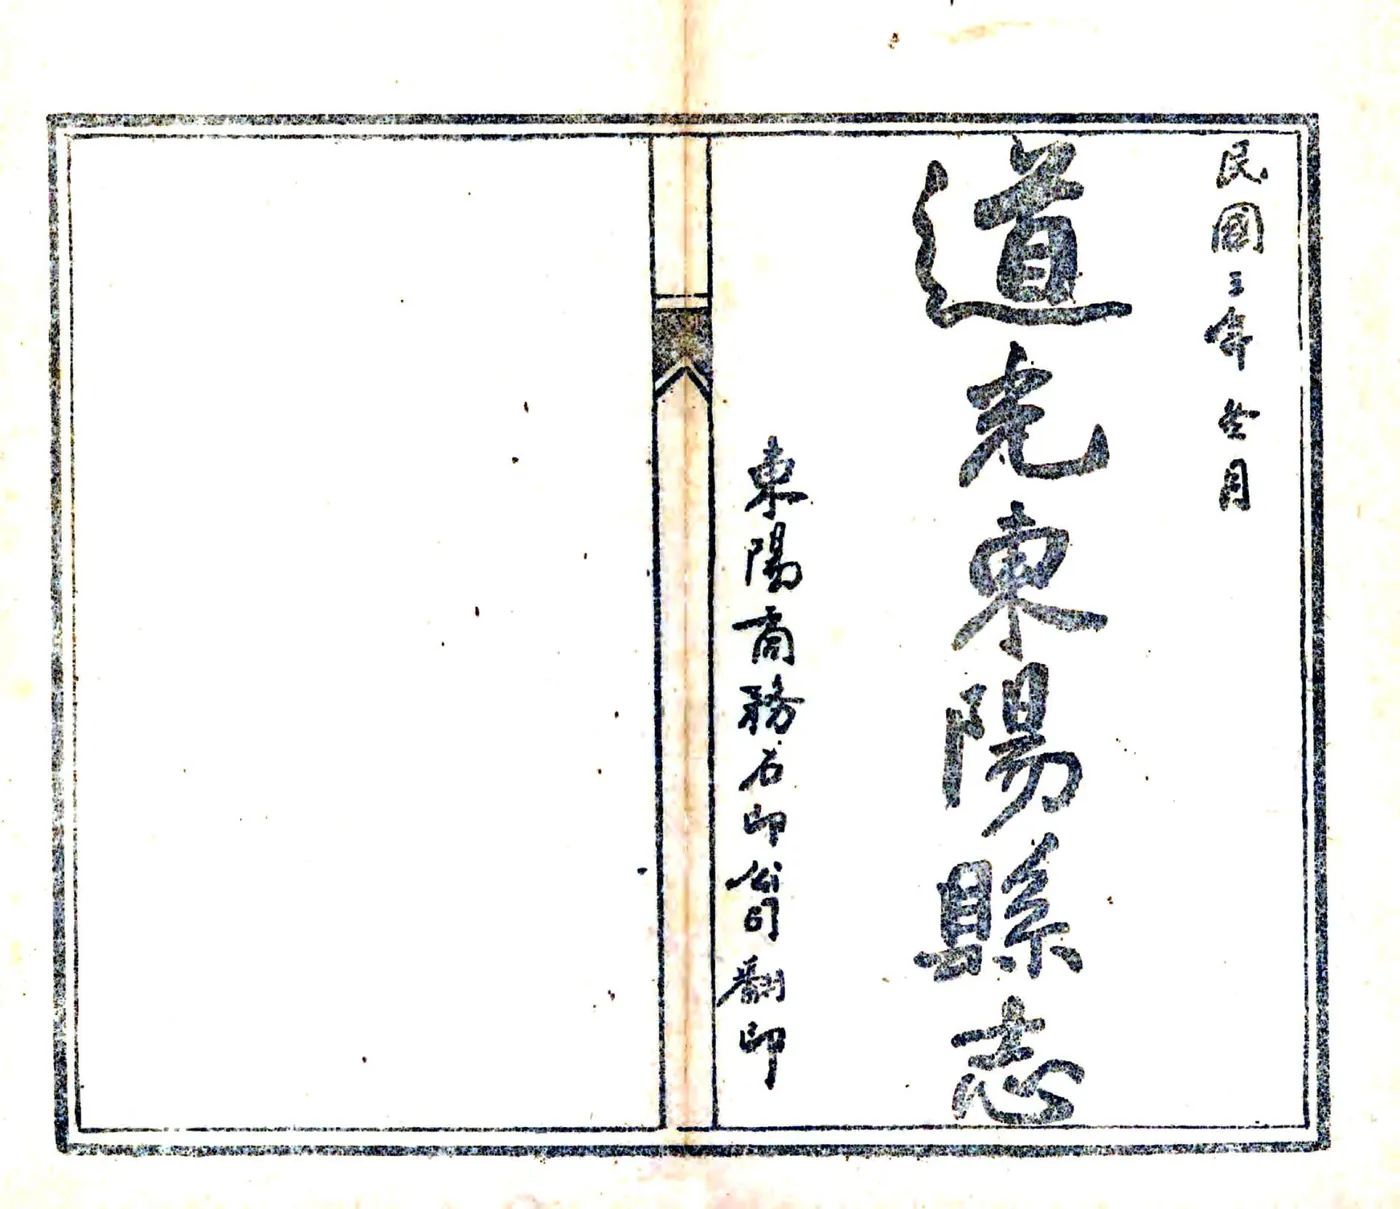 民國三年 月
道光東陽縣志
東陽商務石印公司翻印